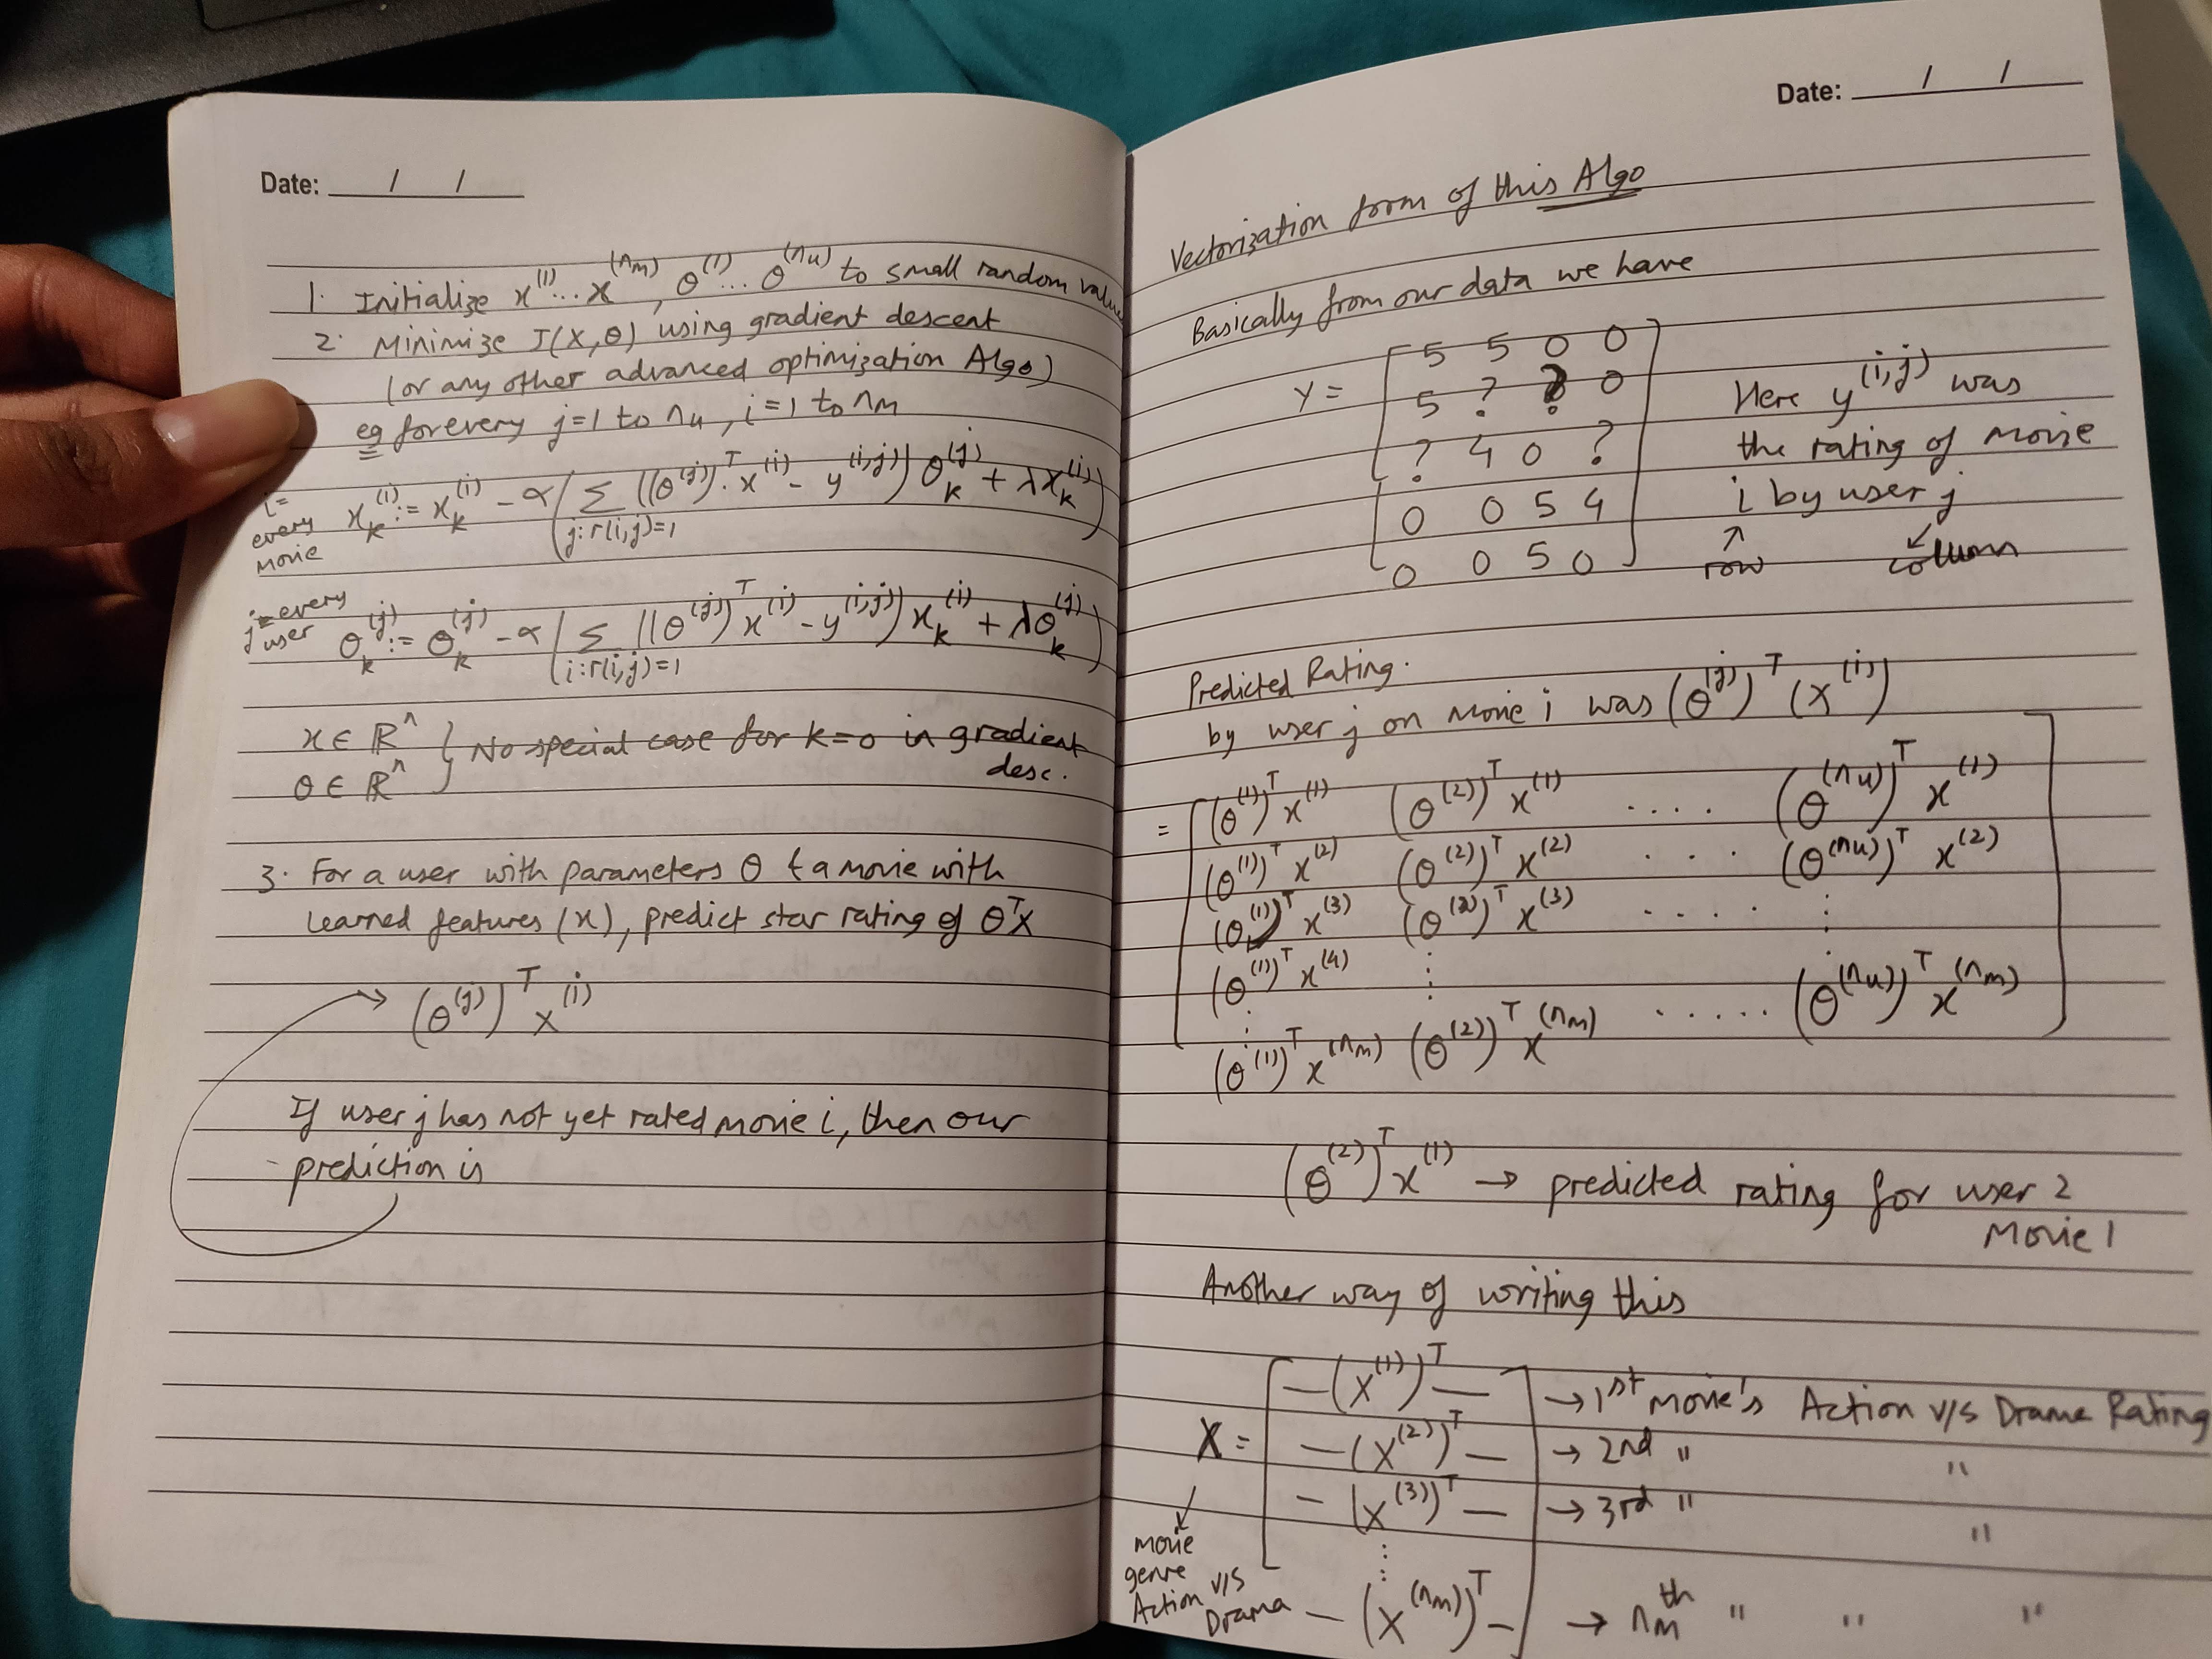 Date: / /
1. Initialize x^(1)...x^(n_m), θ^(1)...θ^(n_u) to small random value
2. Minimize J(x,θ) using gradient descent
(or any other advanced optimization Algo)
eg for every j=1 to n_u, i=1 to n_m
i= every movie x_k^(i) := x_k^(i) - α( Σ_{j:r(i,j)=1} ((θ^(j))^T. x^(i) - y^(i,j)) θ_k^(j) + λx_k^(i))
j=every user θ_k^(j) := θ_k^(j) - α( Σ_{i:r(i,j)=1} ((θ^(j))^T x^(i) - y^(i,j)) x_k^(i) + λθ_k^(j))
x ∈ ℝ^n } No special case for k=0 in gradient
θ ∈ ℝ^n desc.
3. For a user with parameters θ & a movie with
learned features (x), predict star rating of θ^T x
→ (θ^(j))^T x^(i)
If user j has not yet rated movie i, then our
- prediction is
Date: / /
Vectorization form of this Algo
Basically from our data we have
Y = [ 5 5 0 0
5 ? ? 0
? 4 0 ?
0 0 5 4
0 0 5 0 ]
Here y^(i,j) was
the rating of movie
i by user j
↑ row ↙ column
Predicted Rating.
by user j on movie i was (θ^(j))^T (x^(i))
= [ (θ^(1))^T x^(1) (θ^(2))^T x^(1) .... (θ^(n_u))^T x^(1)
(θ^(1))^T x^(2) (θ^(2))^T x^(2) ... (θ^(n_u))^T x^(2)
(θ^(1))^T x^(3) (θ^(2))^T x^(3) ..... ⋮
(θ^(1))^T x^(4) ⋮
⋮
(θ^(1))^T x^(n_m) (θ^(2))^T x^(n_m) ..... (θ^(n_u))^T x^(n_m) ]
(θ^(2))^T x^(1) → predicted rating for user 2
Movie 1
Another way of writing this
X = [ —(x^(1))^T— → 1st movie's Action v/s Drama Rating
—(x^(2))^T— → 2nd " "
—(x^(3))^T— → 3rd " "
⋮
—(x^(n_m))^T— ] → n_m^th " " "
movie
genre
Action v/s
Drama